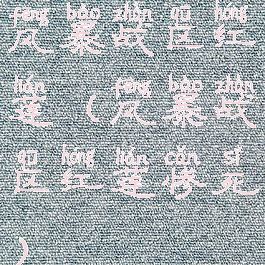 fēng bào zhàn qū hóng
风暴战区红
lián fēng bào zhàn
莲（风暴战
qū hóng lián cǎn sǐ
区红莲惨死
）